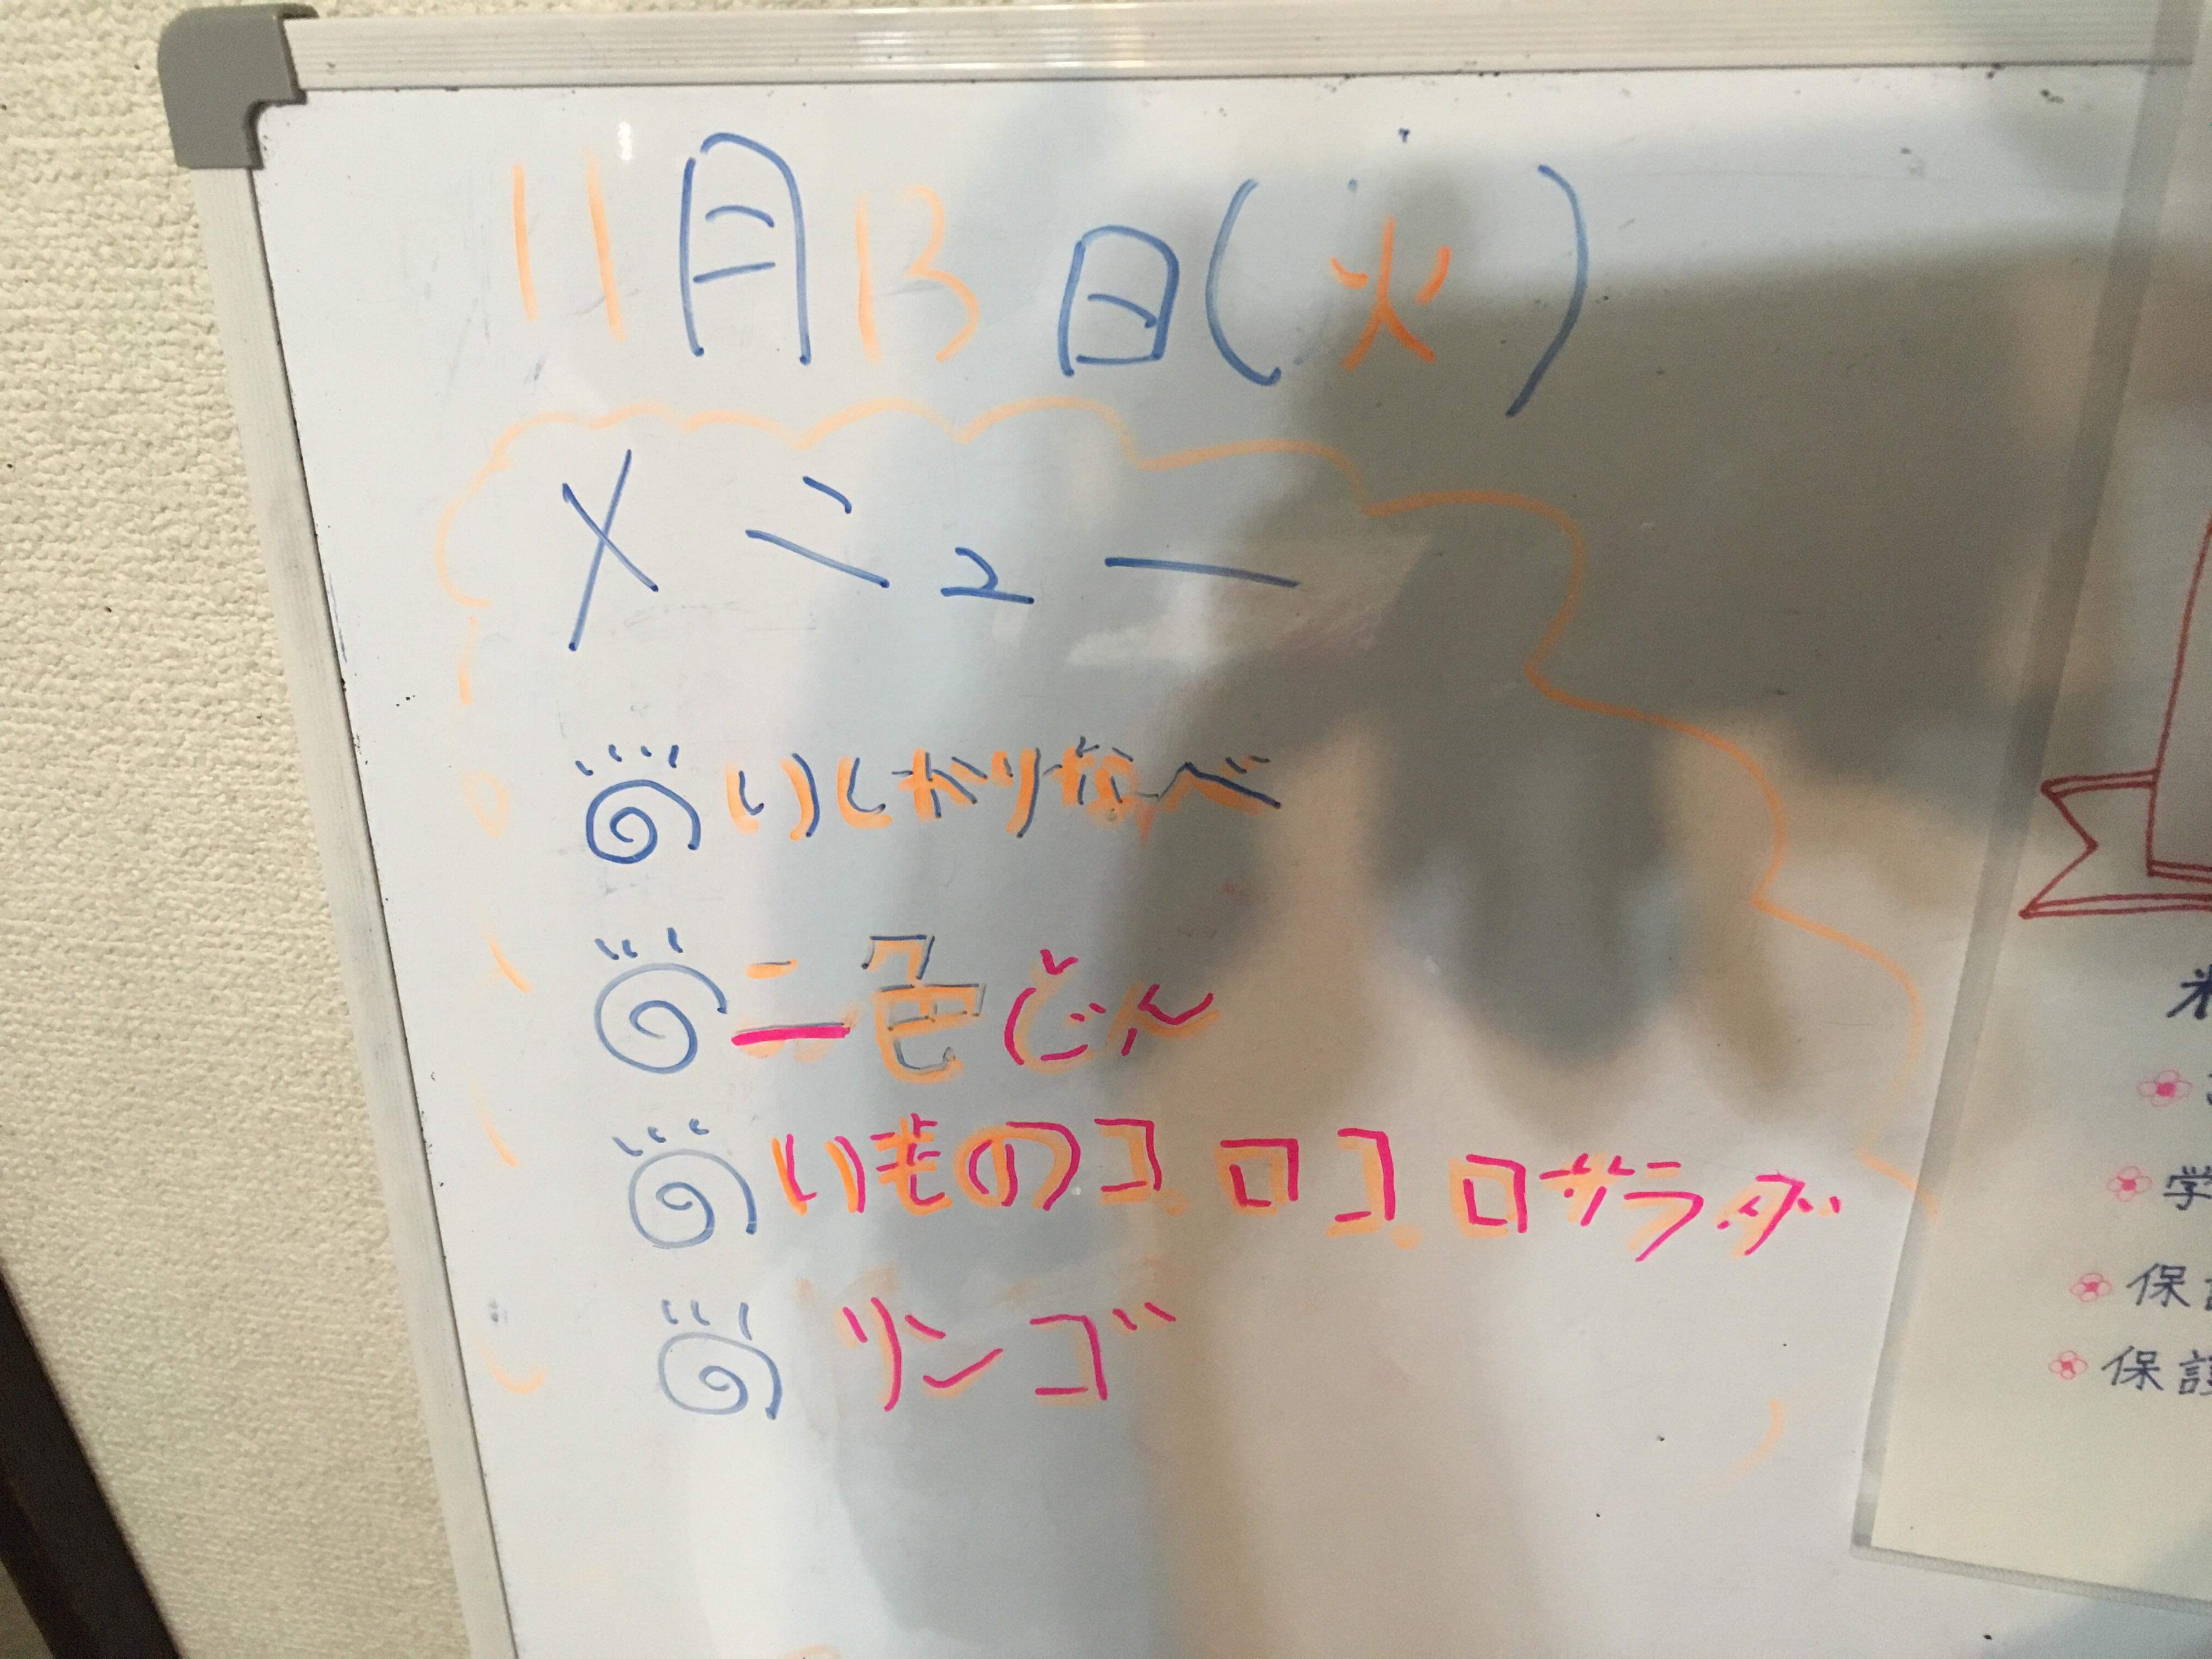 11月13日(火)
メニュー
いしかりなべ
二色どん
いものコロコロサラダ
リンゴ
米
学
保護
保護